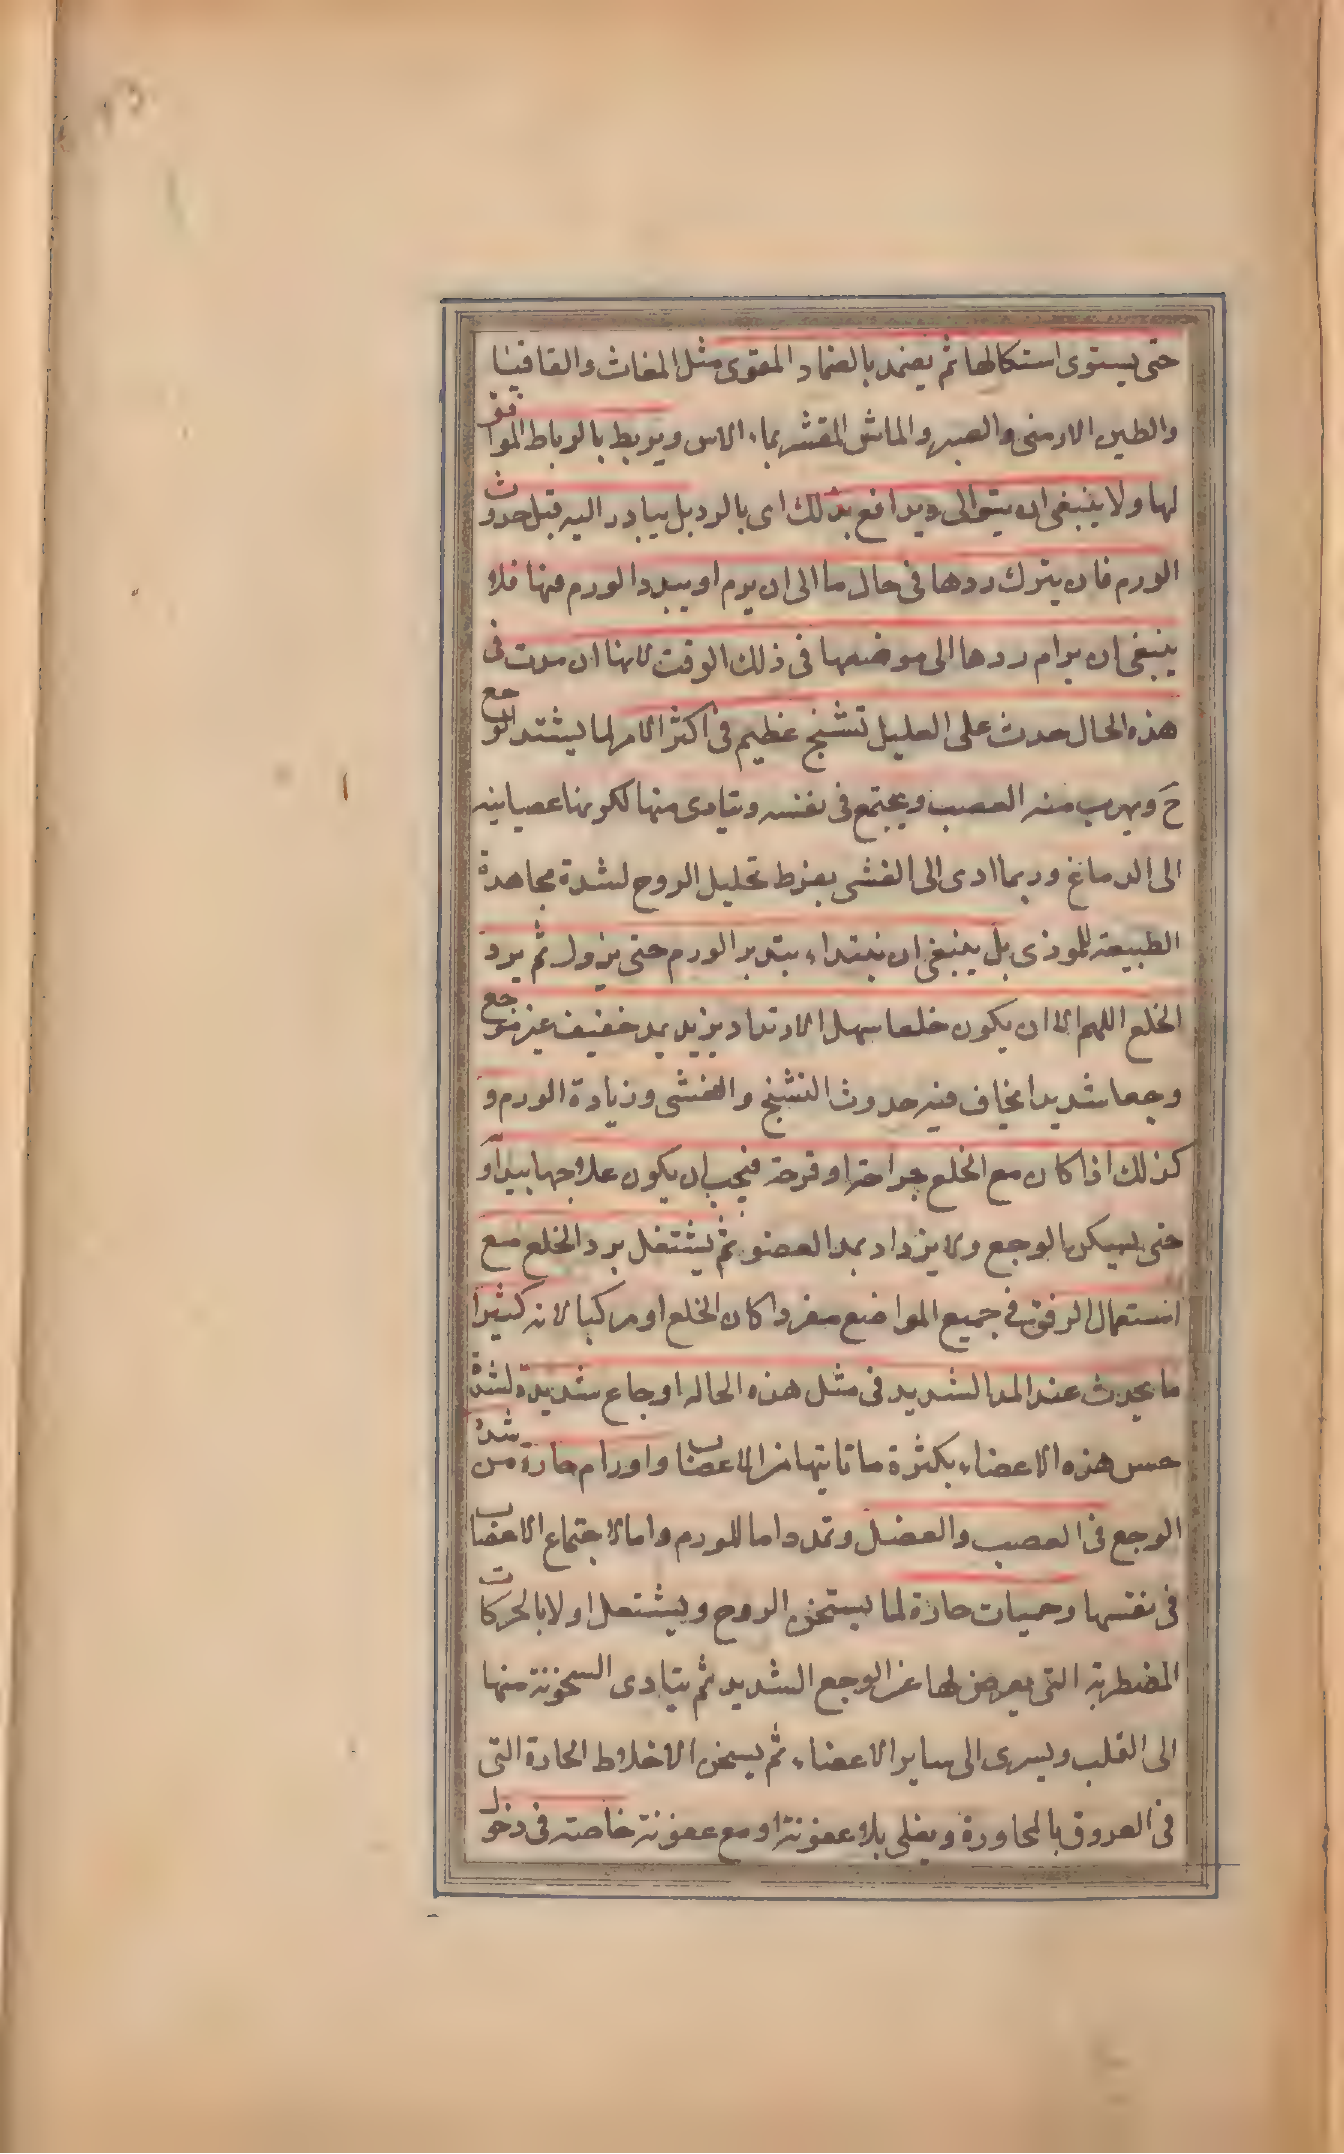 حتى يستوى استكالها ثم يضمد بالضماد المقوى مثل المغاث والقاقيا
والطين الارمنى والصبر والماش المقشر بماء الاس ويربط بالرباط الموافق
لها ولا ينبغى ان يتوالى ويدافع بذلك اى بالرد بل يبادر اليه قبل حدوث
الورم فان يترك ردها فى حال ما الى ان يرم او يبدو الورم فيها فلا
ينبغى ان يرام ردها الى موضعها فى ذلك الوقت لانها ان مدت فى
هذه الحال حدث على العليل تشنج عظيم فى اكثر الامر لما يشتد الوجع
ح ويهرب منه العصب ويجتمع فى نفسه ويتادى منها لكونها عصبانيه
الى الدماغ وربما ادى الى الغشى بفرط تحليل الروح لشدة مجاهدة
الطبيعة للموذى بل ينبغى ان يبتداء بتدبر الورم حتى يزول ثم يرد
الخلع اللهم الا ان يكون خلعا سهل الارتداد يزيد بمد خفيف غير موجع
وجعا شديدا يخاف فيه حدوث التشنج والغشى وزيادة الورم و
كذلك اذا كان مع الخلع جراحة او قرحة فيجب ان يكون علاجها يبداو
حتى يسكن الوجع ولا يزداد بمد العضو ثم يشتغل برد الخلع مع
استعمال الرفق فى جميع المواضع مفردا كان الخلع او مركبا لانه كثيرا
ما يحدث عند المد الشديد فى مثل هذه الحاله اوجاع شديدة لشدة
حس هذه الاعضاء بكثرة ما تاتيها من الاعصاب واورام حارة من شدة
الوجع فى العصب والعضل وتمدد اما للورم واما لاجتماع الاعصاب
فى نفسها وحميات حادة لما يستخن الروح ويشتعل اولا بالحركات
المضطربة التى يعرض لها عن الوجع الشديد ثم يتادى السخونة منها
الى القلب ويسرى الى ساير الاعضاء ثم يسخن الاخلاط الحادة التى
فى العروق بالمجاورة ويغلى بلا عفونة او مع عفونة خاصة فى دخول